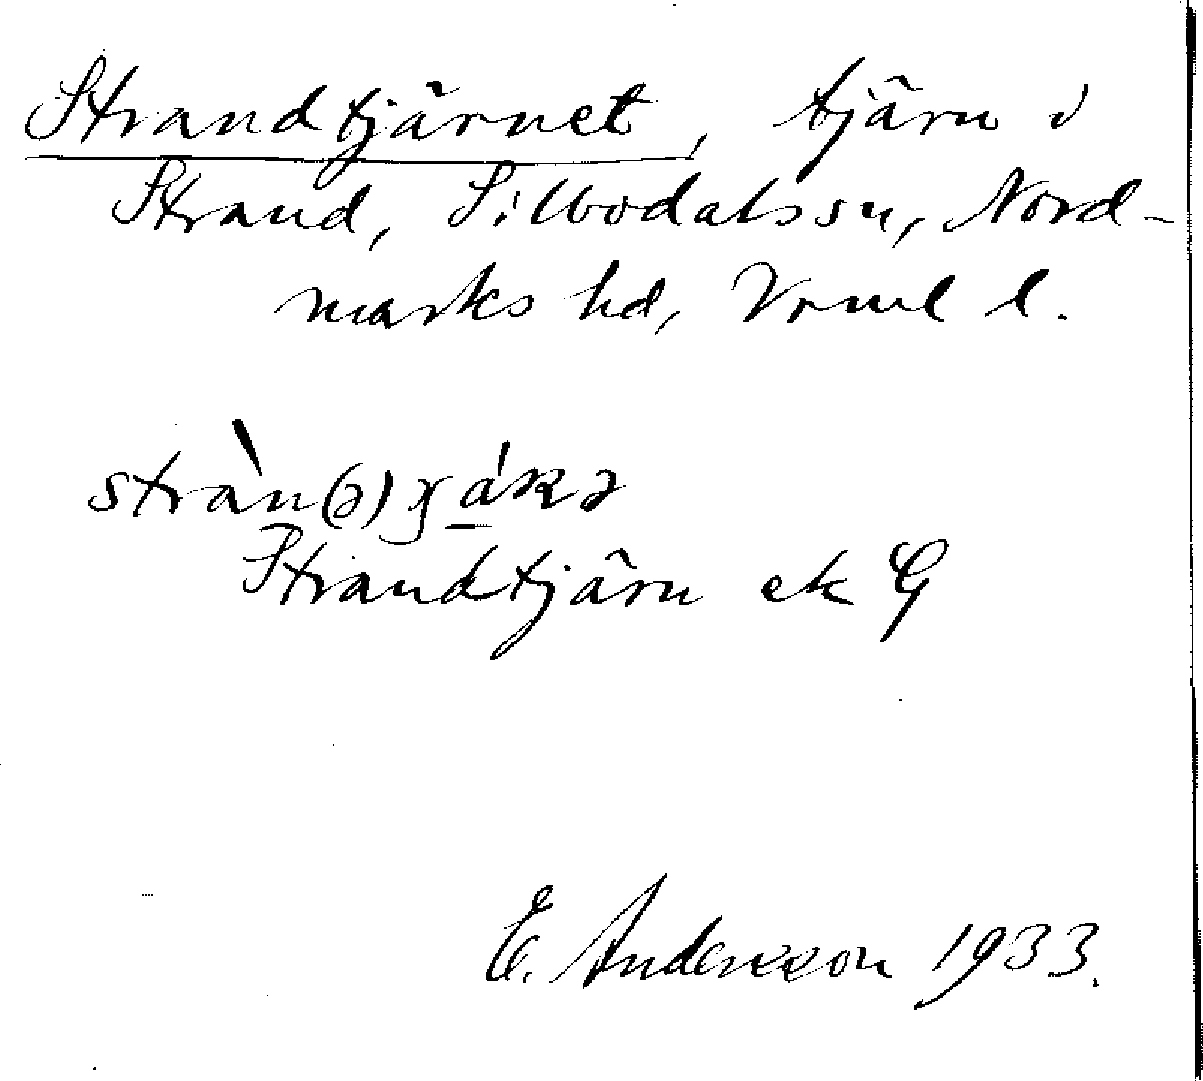 Strandtjärnet, tjärn i
Strand, Silbodals sn, Nord-
marks hd, Vrml l.
Strandtjärn ek G
E. Andersson 1933.